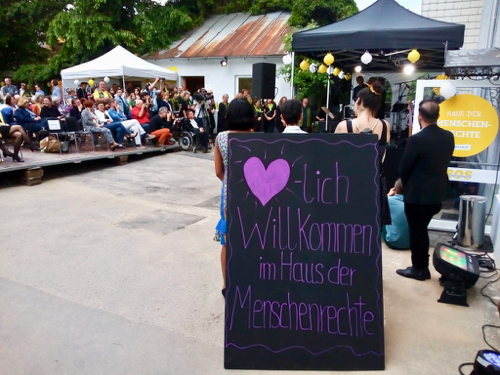 ♥-lich
Willkommen
im Haus der
Menschenrechte
HAUS DER
MENSCHEN-
RECHTE
SOS